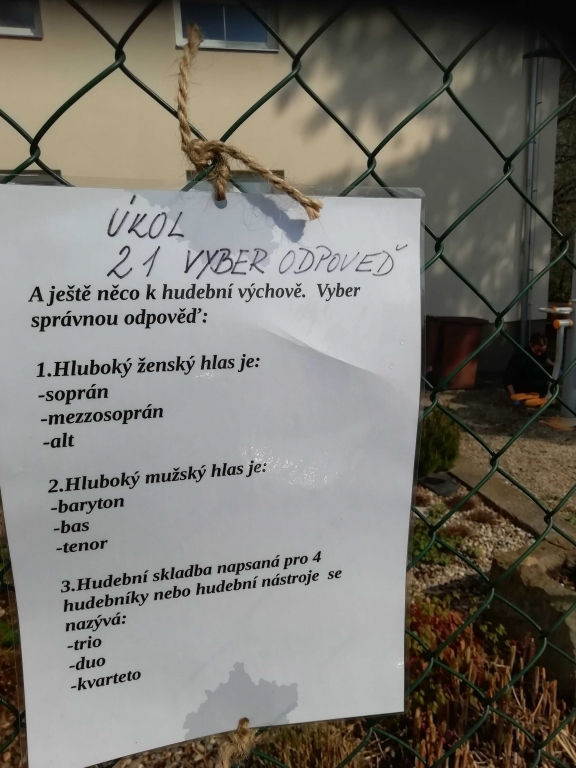 ÚKOL
21 VYBER ODPOVEĎ
A ještě něco k hudební výchově. Vyber
správnou odpověď:
1.Hluboký ženský hlas je:
-soprán
-mezzosoprán
-alt
2.Hluboký mužský hlas je:
-baryton
-bas
-tenor
3.Hudební skladba napsaná pro 4
hudebníky nebo hudební nástroje se
nazývá:
-trio
-duo
-kvarteto